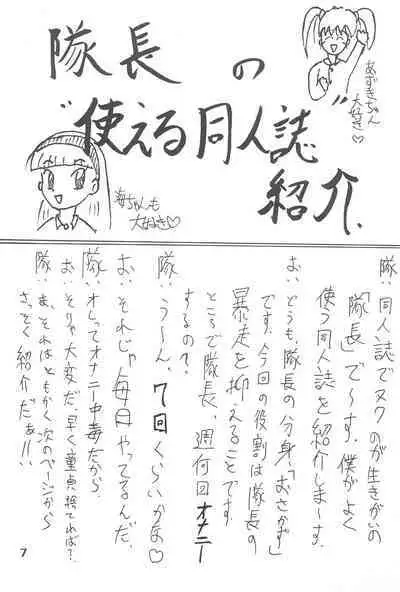 隊長の
"使える同人誌"
紹介.
あずきちゃん
大好き♡
海ちゃんも
大好き♡
隊：同人誌でヌクのが生きがいの
「隊長」で〜す。僕がよく
使う同人誌を紹介しま〜す。
お：どうも、隊長の分身、「おさかず」
です。今回の役割は隊長の
暴走を抑えることです。
ところで隊長、週何回オナニー
するの？
隊：う〜ん、7回くらいかな♡
お：それじゃ毎日やってるんだ。
隊：オレってオナニー中毒だから。
お：そりゃ大変だ、早く童貞捨てれば？
隊：ま、それはともかく次のページから
さっそく紹介だぁ〜!!
7